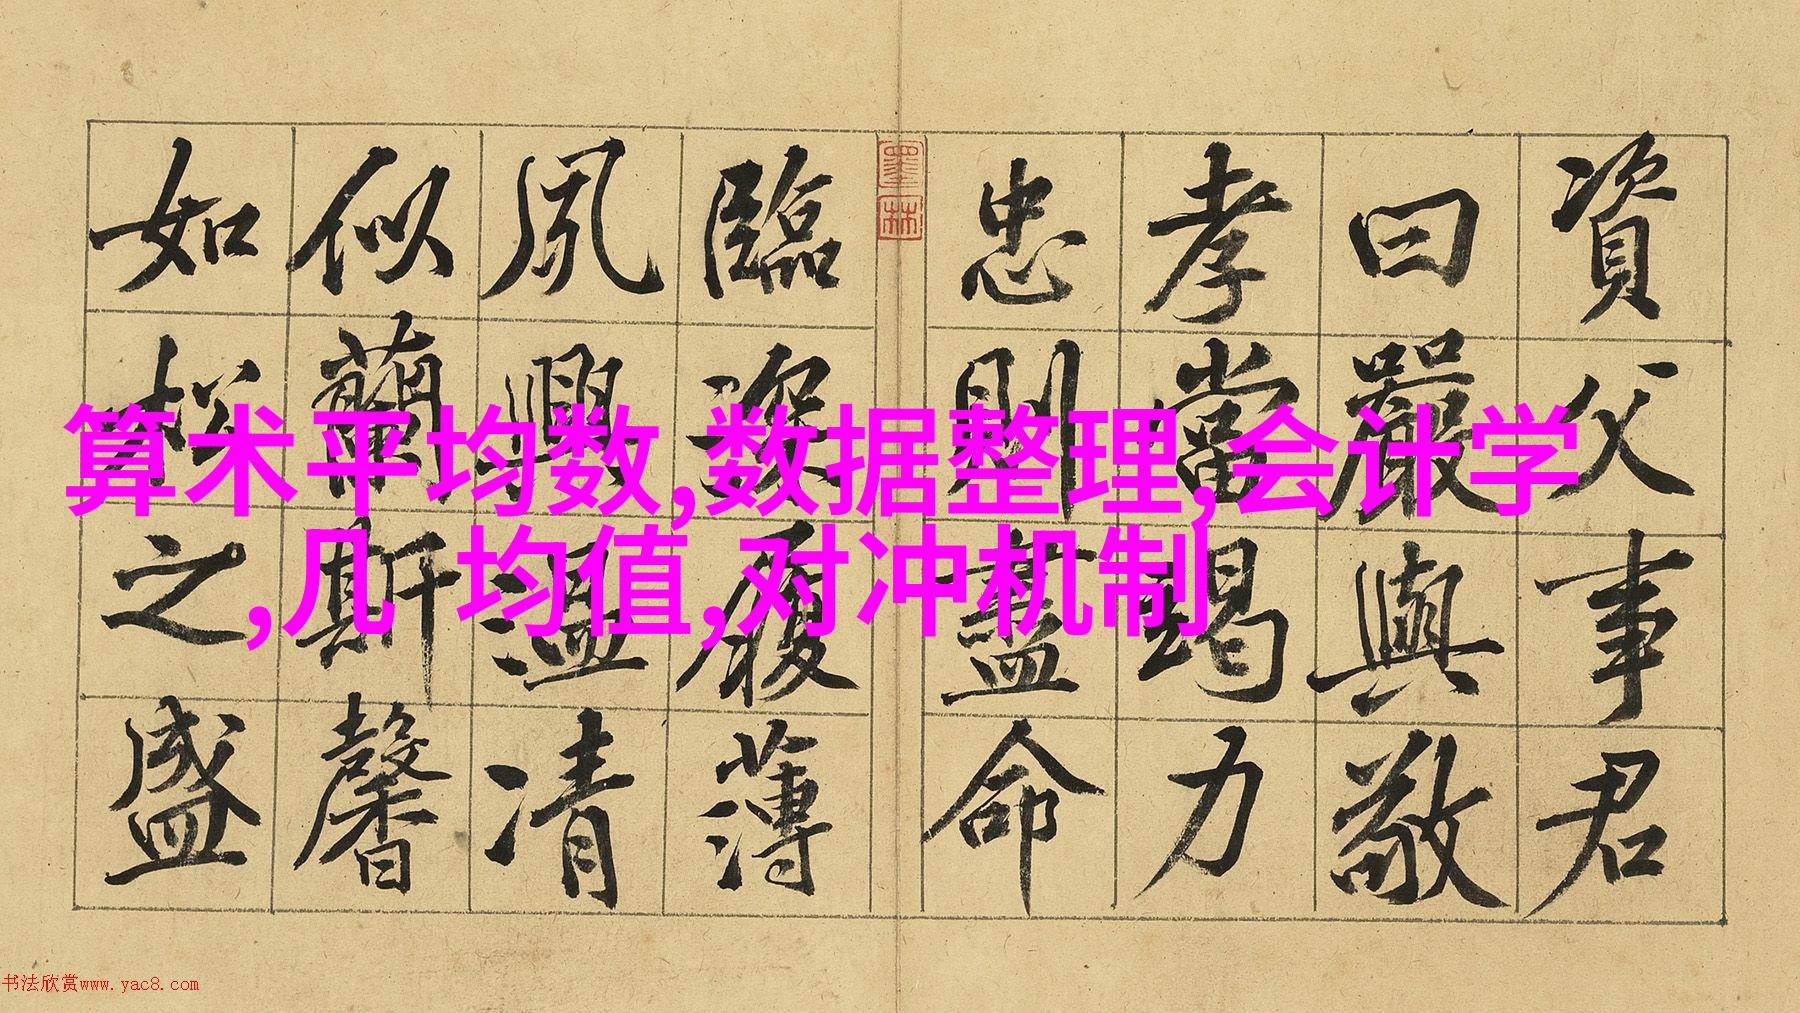 資父事君
曰嚴與敬
孝當竭力
忠則盡命
墨林
臨深履薄
夙興溫凊
似蘭斯馨
如松之盛
算术平均数,数据整理,会计学
,几 均值,对冲机制
书法欣赏www.yac8.com